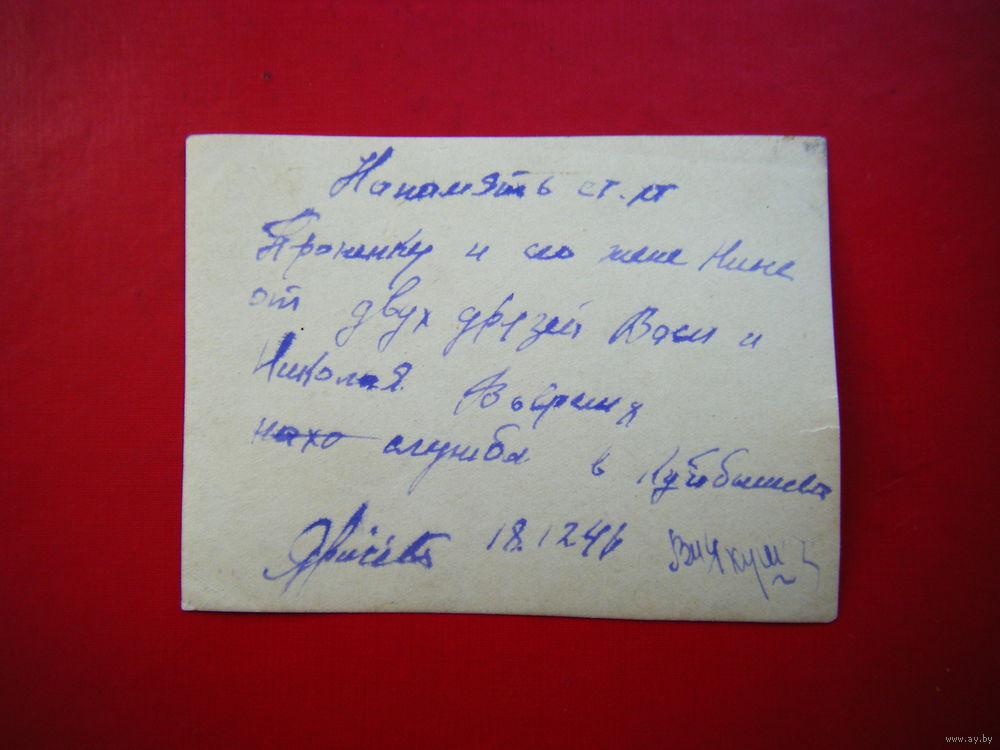 Напамять ст. лт
Проненку и его жене Нине
от двух друзей Васи и
Николая. Во время
нахо службы в Куйбышеве
18.12 46
www.ay.by